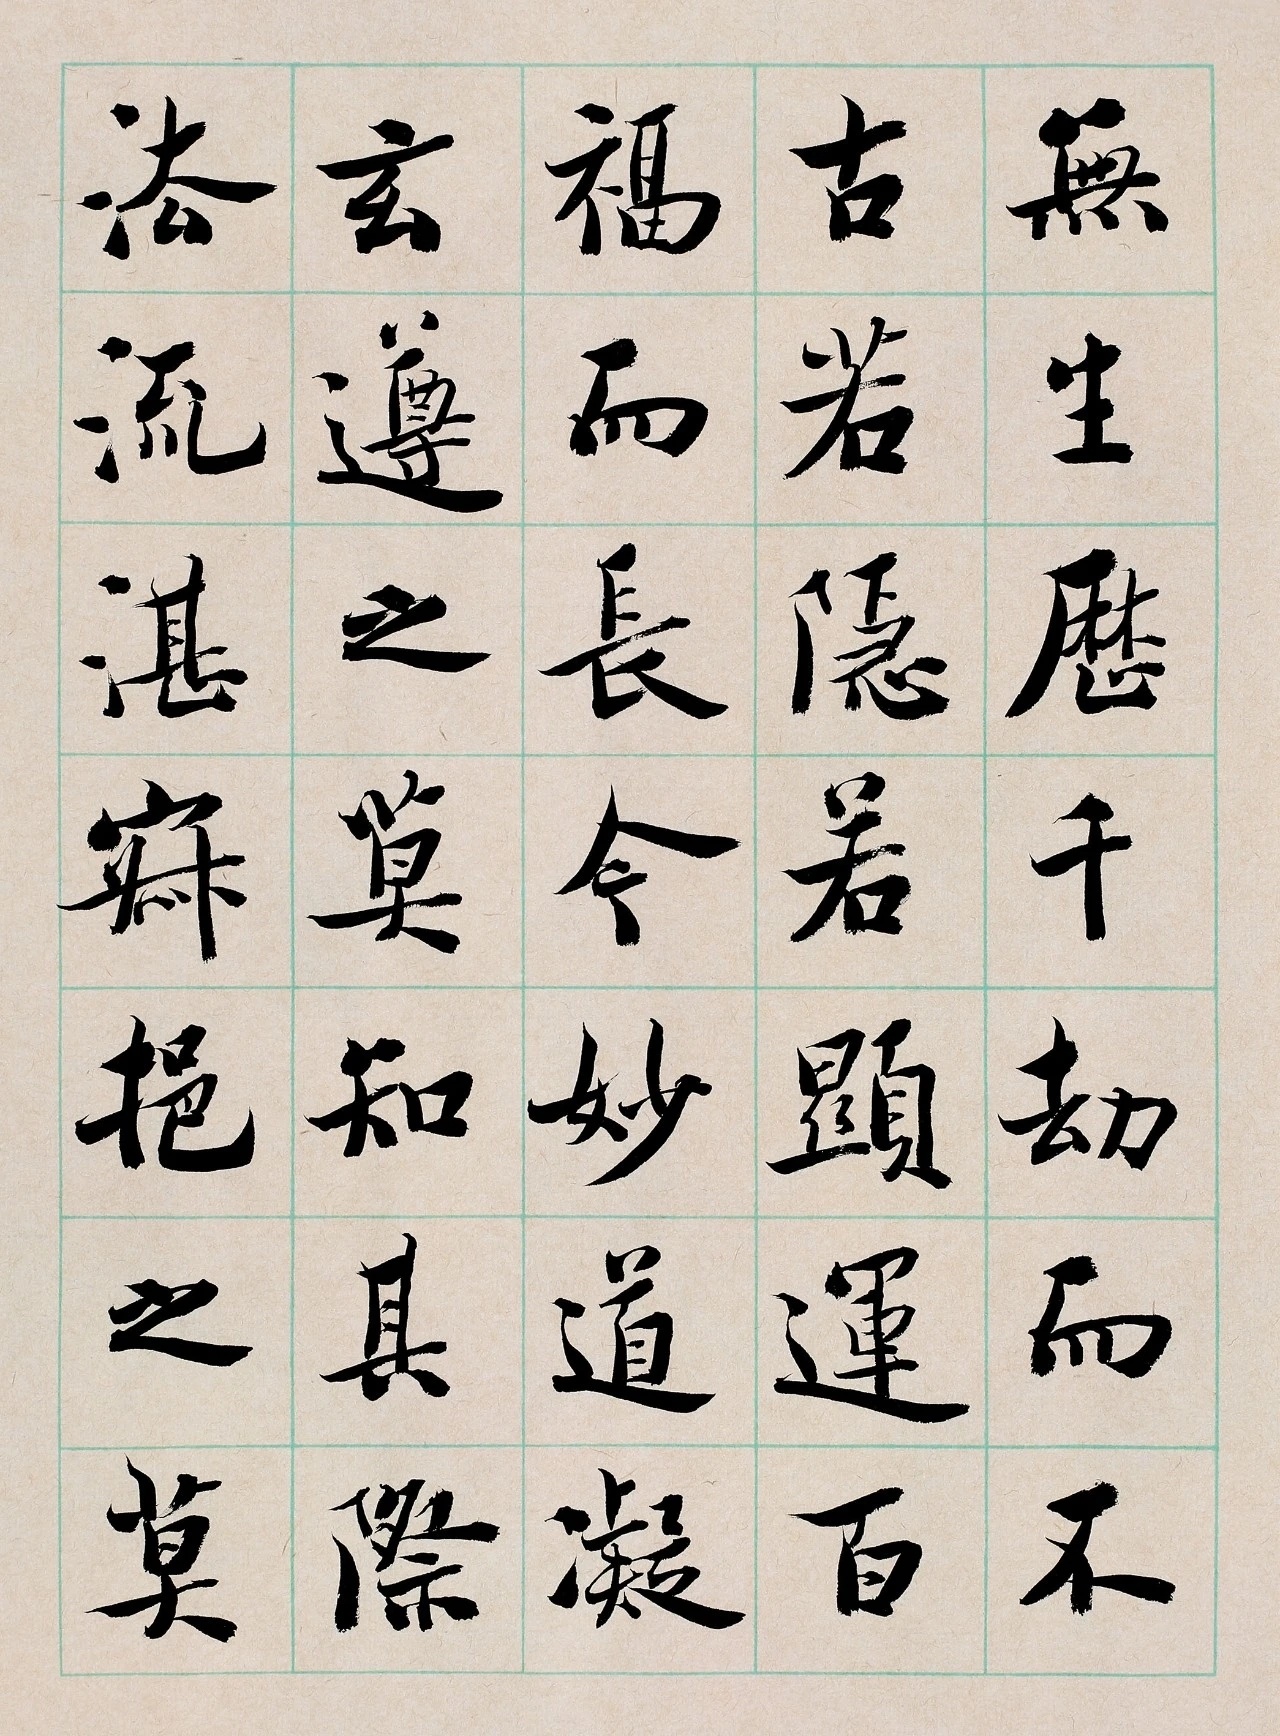 無生歷千劫而不
古若隱若顯運百
福而長今妙道凝
玄遵之莫知其際
法流湛寂挹之莫